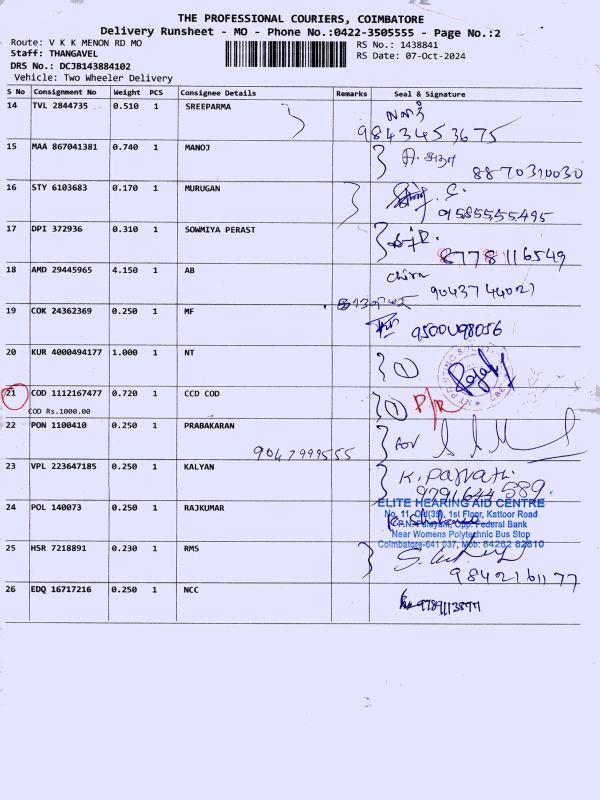 THE PROFESSIONAL COURIERS, COIMBATORE
Delivery Runsheet - MO - Phone No.:0422-3505555 - Page No.:2
Route: V K K MENON RD MO
RS No.: 1438841
Staff: THANGAVEL
RS Date: 07-Oct-2024
DRS No.: DCJB143884102
Vehicle: Two Wheeler Delivery
S No Consignment No Weight PCS Consignee Details Remarks Seal & Signature
14 TVL 2844735 0.510 1 SREEPARMA
9843453675
15 MAA 867041381 0.740 1 MANOJ
8870310030
16 STY 6103683 0.170 1 MURUGAN
9585555495
17 DPI 372936 0.310 1 SOWMIYA PERAST
8778116549
18 AMD 29445965 4.150 1 AB
9043744027
19 COK 24362369 0.250 1 MF
20 KUR 4000494177 1.000 1 NT
1
21 COD 1112167477 0.720 1 CCD COD
1 P/R
COD Rs.1000.00
22 PON 1100410 0.250 1 PRABAKARAN
9047999555
23 VPL 223647185 0.250 1 KALYAN
K. Parvathi
9791644589
24 POL 140073 0.250 1 RAJKUMAR
ELITE HEARING AID CENTRE
No. 11, Old(35), 1st Floor, Kattoor Road
P.N. Palayam, Opp. Federal Bank
Near Womens Polytechnic Bus Stop
Coimbatore-641 037, Mob: 84262 82810
25 HSR 7218891 0.230 1 RMS
9842161177
26 EDQ 16717216 0.250 1 NCC